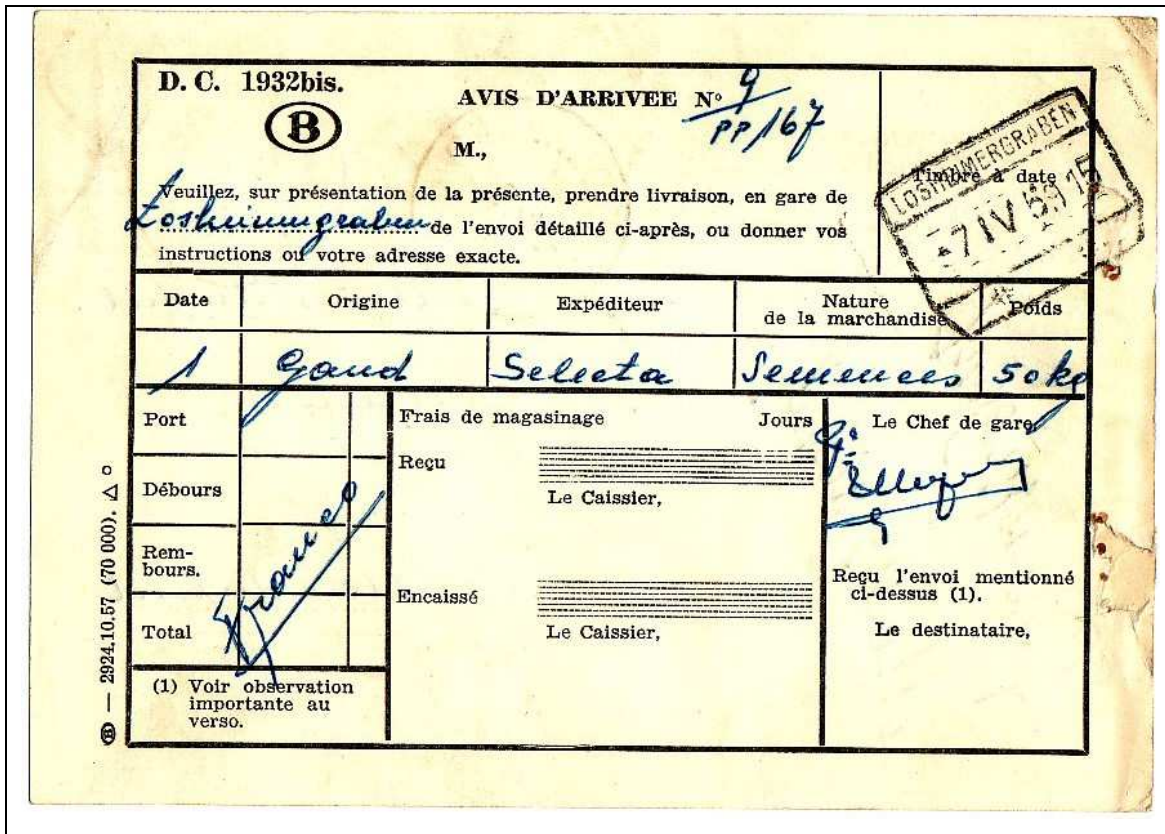 D. C. 1932bis.
B
AVIS D'ARRIVEE N° 9
PP/167
M.,
Timbre à date
LOSHEIMERGRABEN
-7 IV 59 15
Veuillez, sur présentation de la présente, prendre livraison, en gare de
Losheimergraben de l'envoi détaillé ci-après, ou donner vos
instructions ou votre adresse exacte.
Date Origine Expéditeur Nature de la marchandise Poids
1 Gand Selecta Semences 50 kg
Port
Débours
Rem-
bours.
Total
Franco
(1) Voir observation
importante au
verso.
Frais de magasinage Jours
Reçu
Le Caissier,
Encaissé
Le Caissier,
Le Chef de gare,
Reçu l'envoi mentionné
ci-dessus (1).
Le destinataire,
B — 2924.10.57 (70 000). △ o